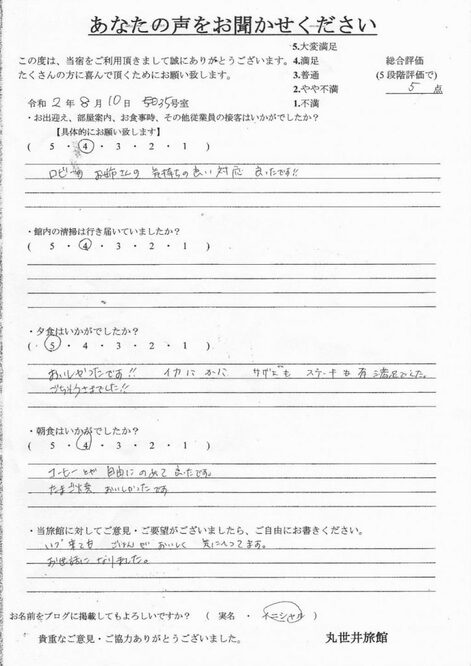 あなたの声をお聞かせください
この度は、当宿をご利用頂きまして誠にありがとうございます。
たくさんの方に喜んで頂くためにお願い致します。
5.大変満足
4.満足
3.普通
2.やや不満
1.不満
総合評価
(5段階評価で)
5 点
令和 2 年 8 月 10 日 5035号室
・お出迎え、部屋案内、お食事時、その他従業員の接客はいかがでしたか?
【具体的にお願い致します】
( 5 ・ 4 ・ 3 ・ 2 ・ 1 )
ロビーの お姉さんの 気持ちの良い対応 良たです!!
・館内の清掃は行き届いていましたか?
( 5 ・ 4 ・ 3 ・ 2 ・ 1 )
・夕食はいかがでしたか?
( 5 ・ 4 ・ 3 ・ 2 ・ 1 )
おいしかったです!! イカに かに サザエも ステーキも 満足でした。
ごちそうさまでした!!
・朝食はいかがでしたか?
( 5 ・ 4 ・ 3 ・ 2 ・ 1 )
コーヒーとか 自由にのめて 良たです。
たまご焼 おいしかったです
・当旅館に対してご意見・ご要望がございましたら、ご自由にお書きください。
いつ来ても ごはんが おいしく 気に入ってます。
お世話になりました。
お名前をブログに掲載してもよろしいですか? ( 実名 ・ イニシャル )
貴重なご意見・ご協力ありがとうございました。
丸世井旅館